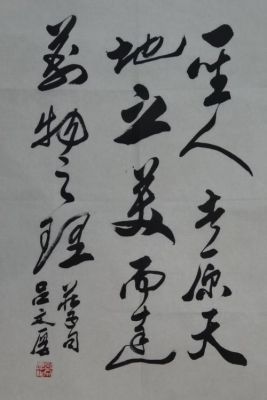 聖人者原天
地之美而達
萬物之理
莊子句
呂文